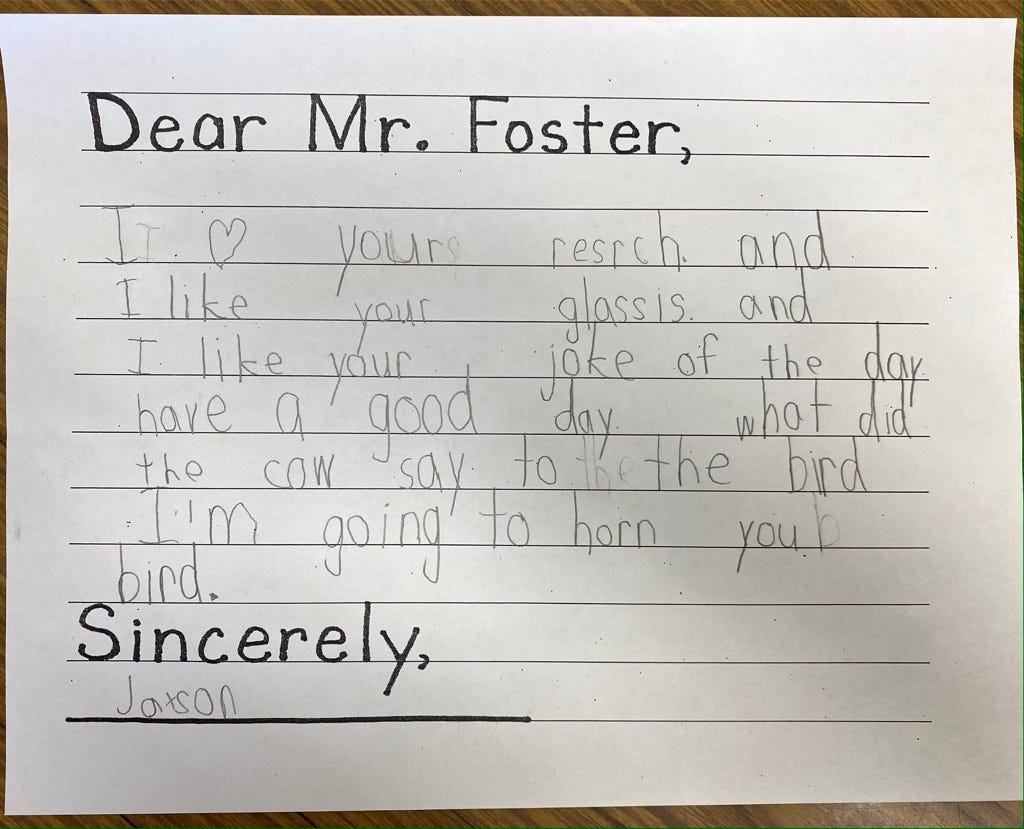 Dear Mr. Foster,
I ♡ yours resrch. and
I like your glassis. and
I like your joke of the day.
have a good day. what did
the cow say to the bird
I'm going to horn you
bird.
Sincerely,
Jaxson